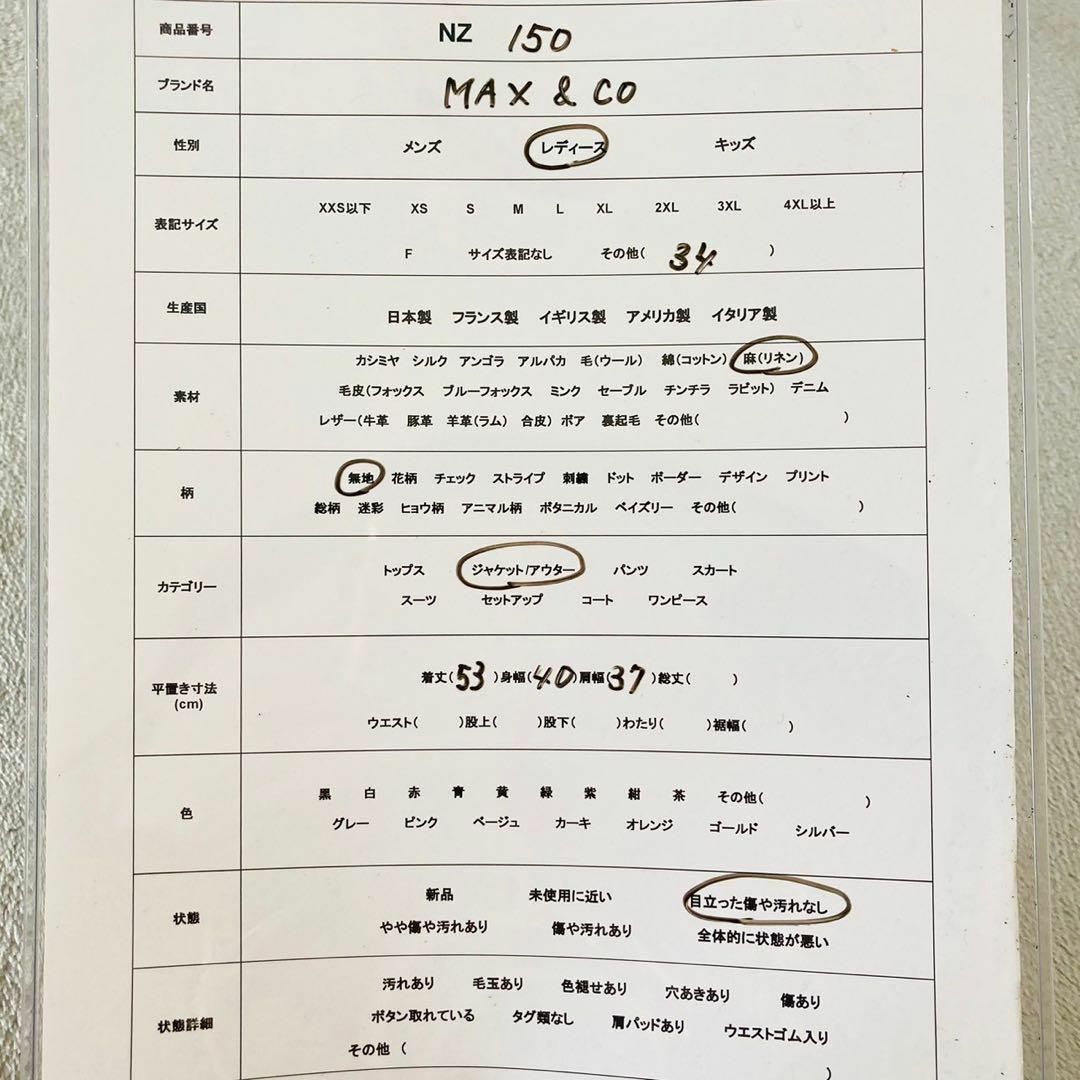 商品番号 NZ 150
ブランド名 MAX & CO
性別 メンズ レディース キッズ
XXS以下 XS S M L XL 2XL 3XL 4XL以上
表記サイズ
F サイズ表記なし その他( 34 )
生産国 日本製 フランス製 イギリス製 アメリカ製 イタリア製
カシミヤ シルク アンゴラ アルパカ 毛(ウール) 綿(コットン) 麻(リネン)
素材 毛皮(フォックス ブルーフォックス ミンク セーブル チンチラ ラビット) デニム
レザー(牛革 豚革 羊革(ラム) 合皮) ボア 裏起毛 その他( )
無地 花柄 チェック ストライプ 刺繍 ドット ボーダー デザイン プリント
柄
総柄 迷彩 ヒョウ柄 アニマル柄 ボタニカル ペイズリー その他( )
トップス ジャケット/アウター パンツ スカート
カテゴリー
スーツ セットアップ コート ワンピース
着丈(53)身幅(40)肩幅(37)総丈( )
平置き寸法
(cm)
ウエスト( )股上( )股下( )わたり( )裾幅( )
黒 白 赤 青 黄 緑 紫 紺 茶 その他( )
色
グレー ピンク ベージュ カーキ オレンジ ゴールド シルバー
新品 未使用に近い 目立った傷や汚れなし
状態
やや傷や汚れあり 傷や汚れあり 全体的に状態が悪い
汚れあり 毛玉あり 色褪せあり 穴あきあり 傷あり
状態詳細 ボタン取れている タグ類なし 肩パッドあり ウエストゴム入り
その他 ( )